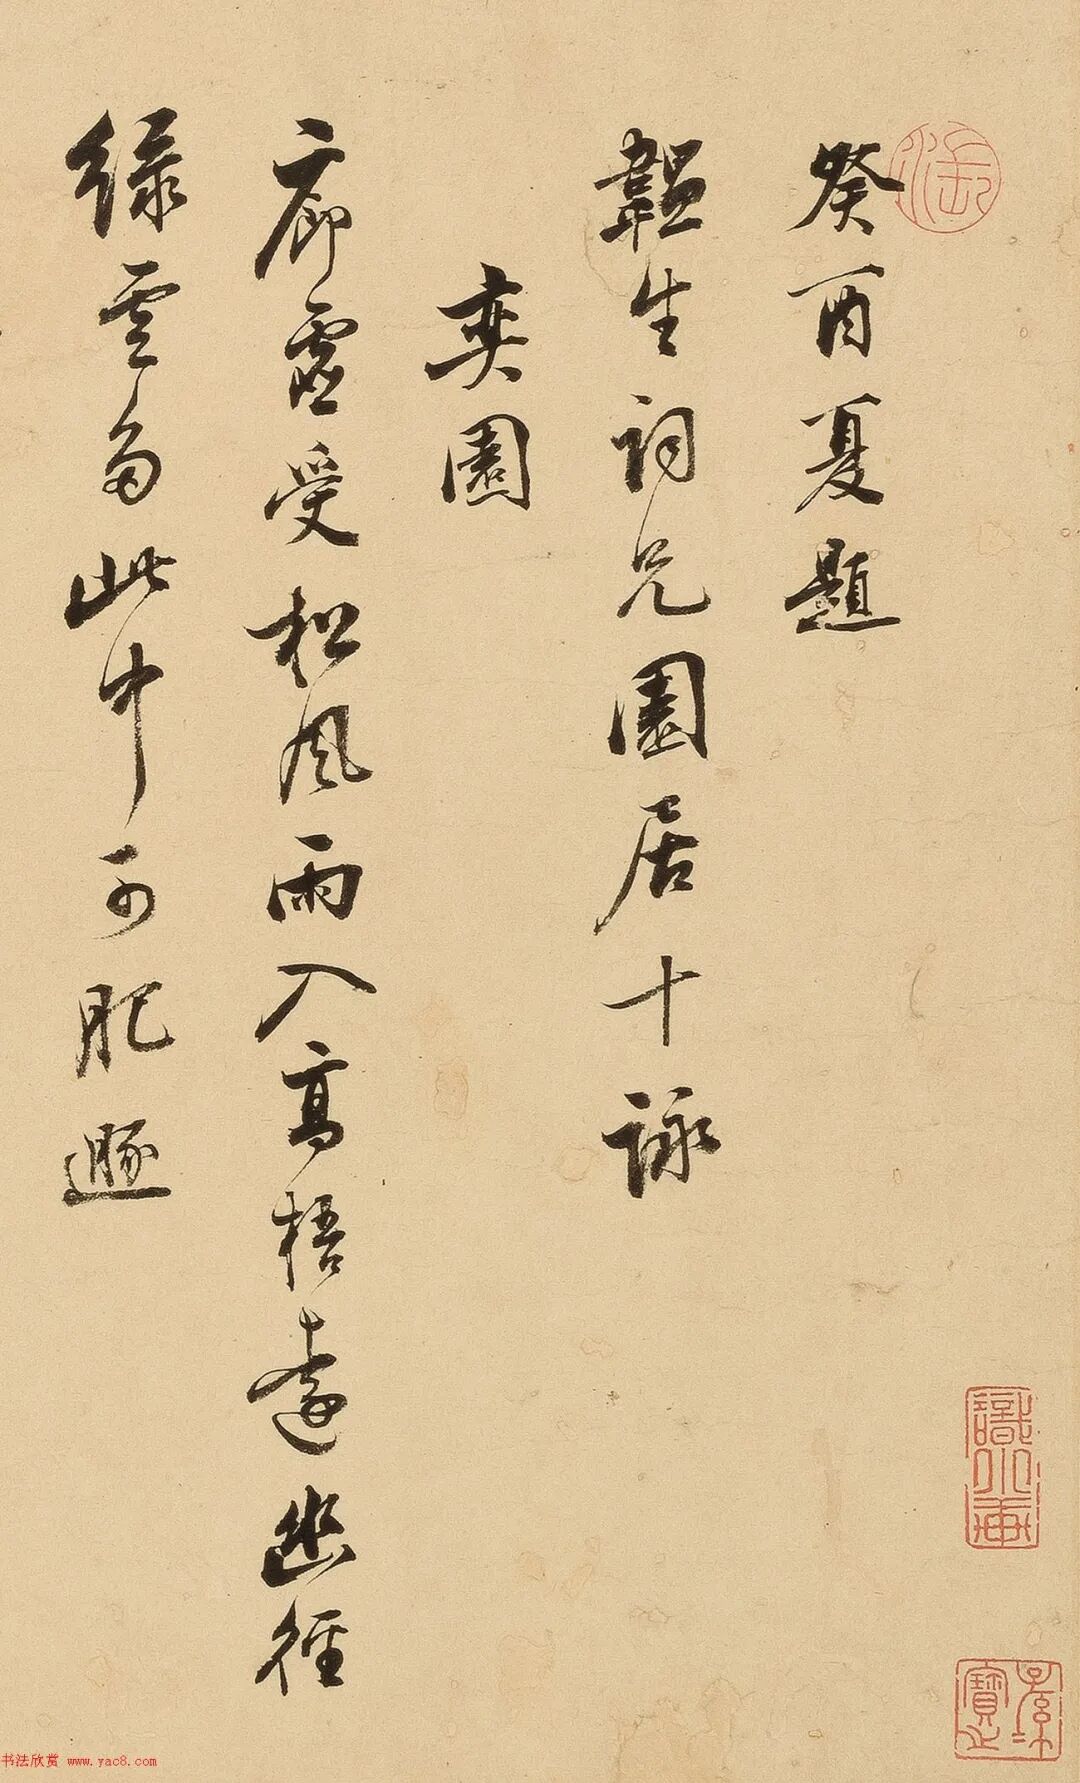 癸酉夏題
韞生詞兄園居十詠
奕園
廊虛受松風雨入高梧遠幽徑
綠雲多此中可肥遯
書法欣赏 www.yac8.com